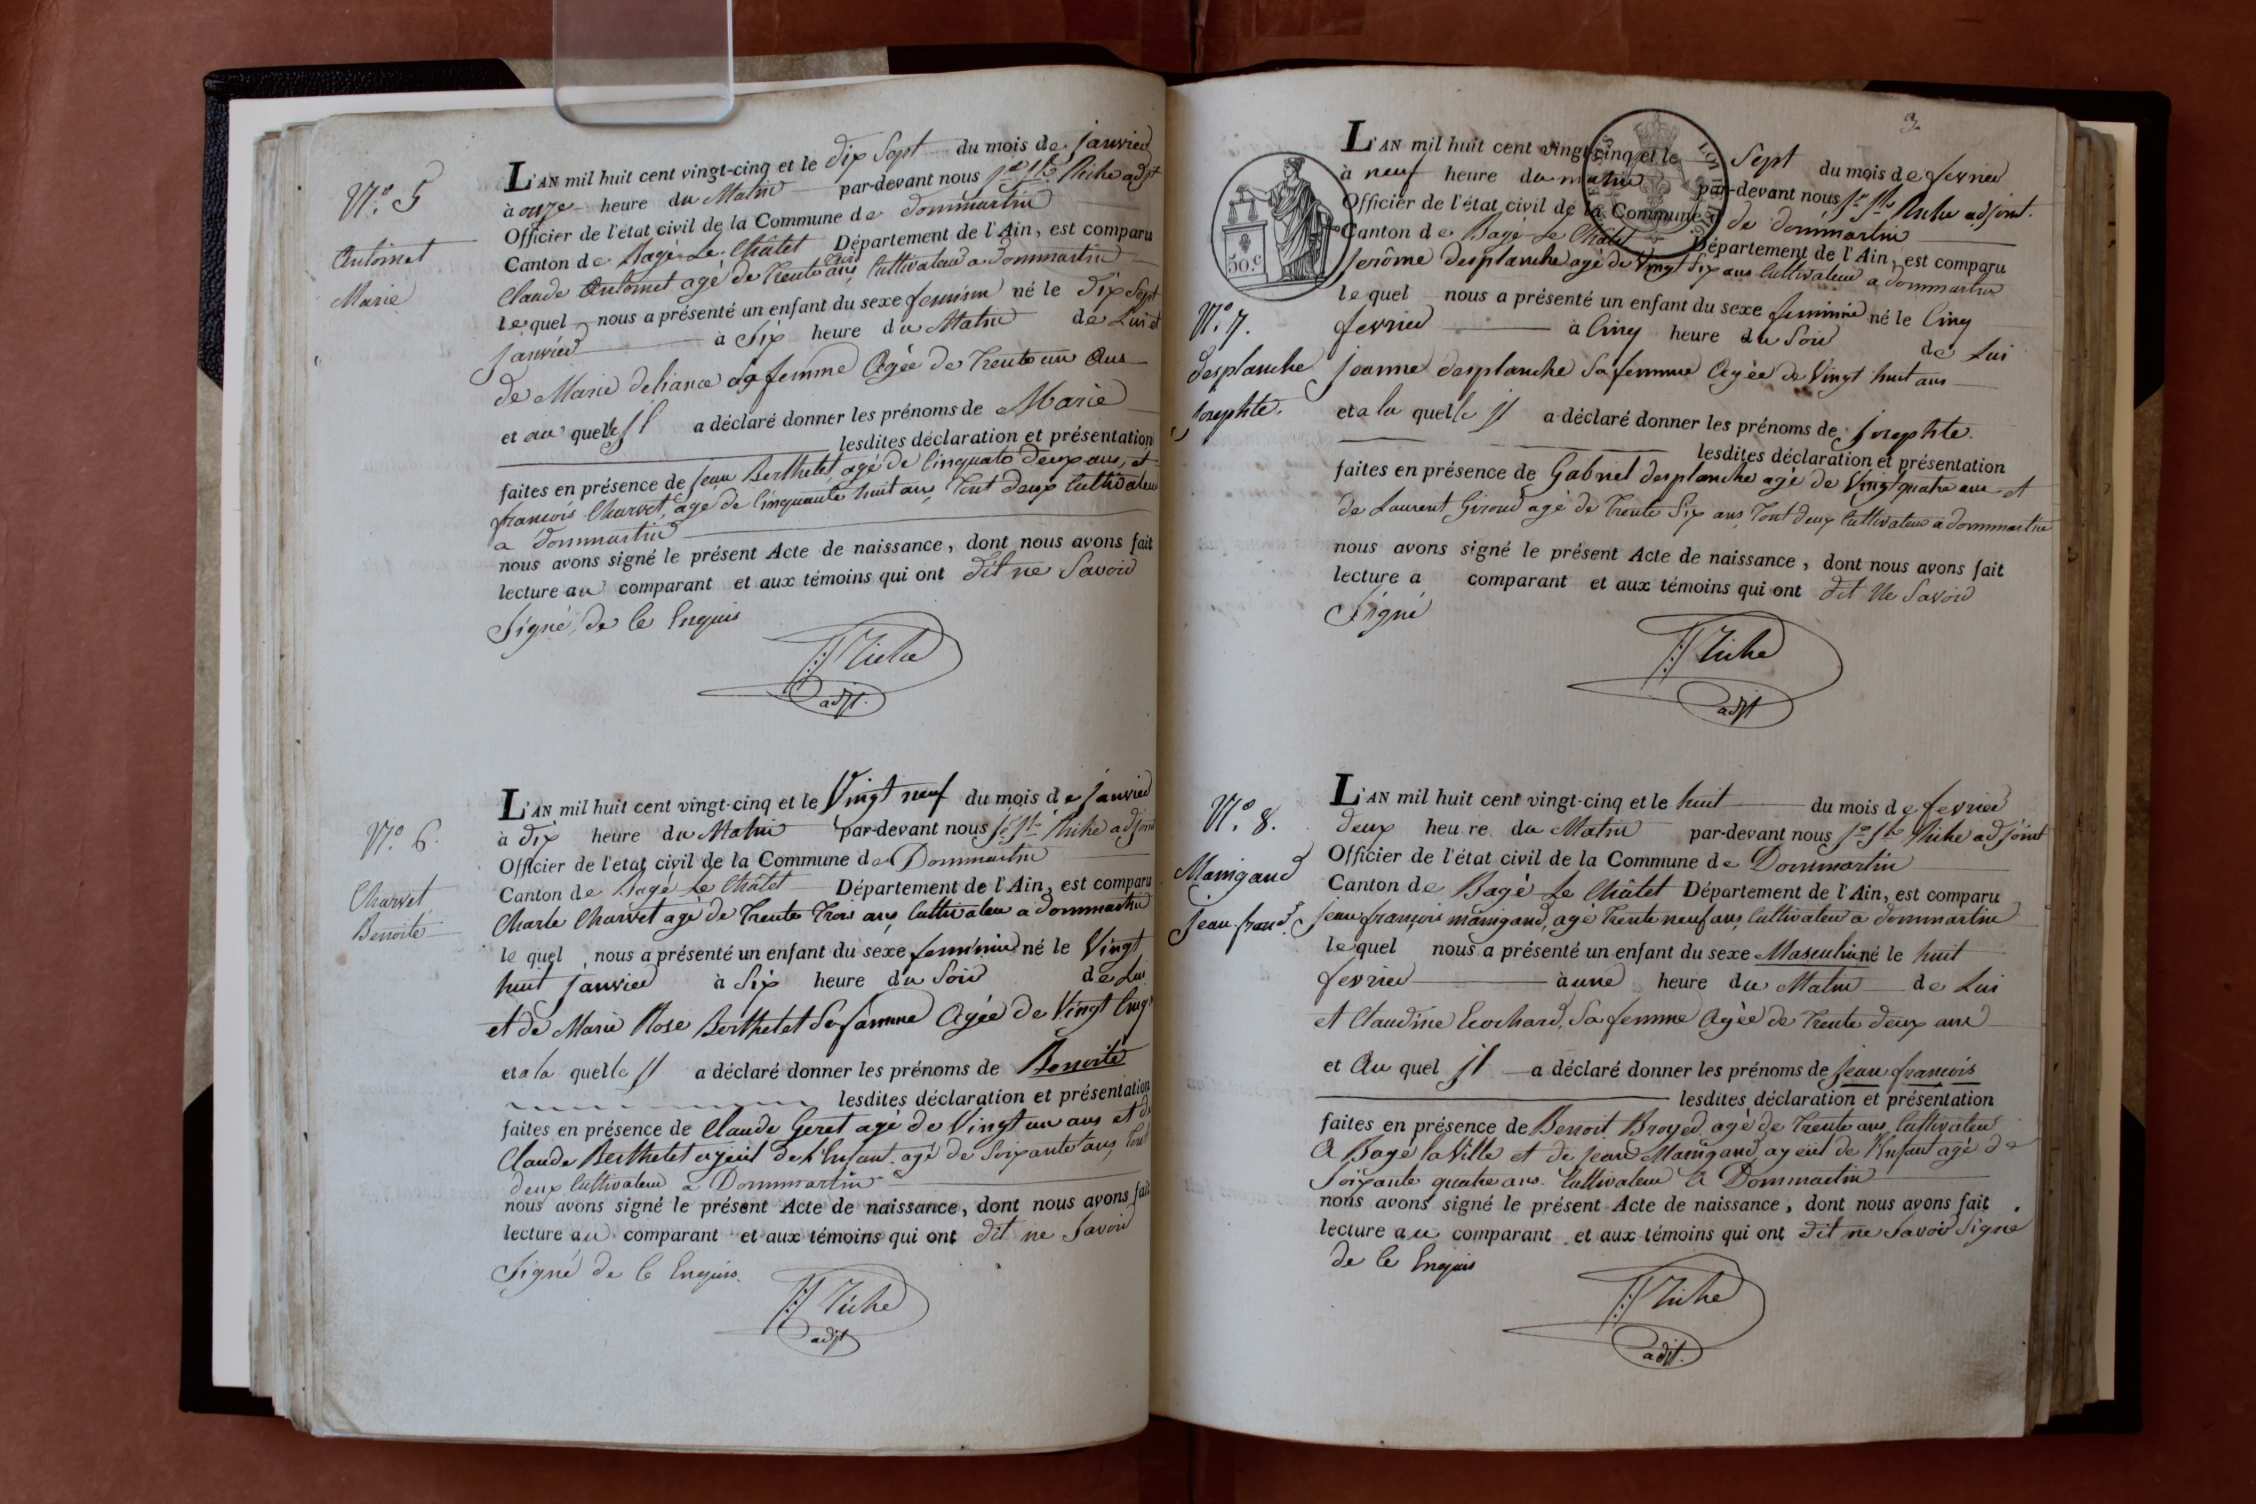 N.º 5
Antoinet
Marie
L'AN mil huit cent vingt-cinq et le dix Sept du mois de janvier
à onze heure du Matin par-devant nous Riche adjt
Officier de l'état civil de la Commune de dommartin
Canton de Bagé Le Châtel Département de l'Ain, est comparu
Claude Antoinet agé de trente ans Cultivateur a dommartin
lequel nous a présenté un enfant du sexe feminin né le Dix Sept
janvier à Six heure du Matin de Lui et
de Marie deliance Sa femme Agée de trente un Ans
et au quelle il a déclaré donner les prénoms de Marie
lesdites déclaration et présentation
faites en présence de jean Berthelet agé de Cinquate deux ans, et
françois Charvet, agé de Cinquante huit ans, tout deux Cultivateur
a dommartin
nous avons signé le présent Acte de naissance, dont nous avons fait
lecture au comparant et aux témoins qui ont dit ne Savoir
Signé, de Ce Enquis
Riche
adjt.
N.º 6.
Charvet
Benoite
L'AN mil huit cent vingt-cinq et le Vingt neuf du mois de janvier
à dix heure du Matin par-devant nous Riche adjoint
Officier de l'état civil de la Commune de Dommartin
Canton de Bagé Le Châtel Département de l'Ain, est comparu
Charle Charvet agé de trente trois ans, Cultivateur a dommartin
le quel nous a présenté un enfant du sexe feminin né le Vingt
huit janvier à Six heure du Soir de Lui
et de Marie Rose Berthelet Sa famme Agée de Vingt Cinq
et a la quelle il a déclaré donner les prénoms de Benoite
lesdites déclaration et présentation
faites en présence de Claude Geret agé de Vingt un ans et de
Claude Berthelet ayeuil de l'Enfant, agé de Soixante ans, tout
deux Cultivateur a Dommartin
nous avons signé le présent Acte de naissance, dont nous avons fait
lecture au comparant et aux témoins qui ont dit ne Savoir
Signé de Ce Enquis.
Riche
adjt
3
50.c
L'AN mil huit cent vingt-cinq et le Sept du mois de fevrier
à neuf heure du matin par-devant nous Riche adjoint.
Officier de l'état civil de la Commune de dommartin
Canton de Bagé Le Châtel Département de l'Ain, est comparu
Jerôme desplanche agé de Vingt Six ans Cultivateur a dommartin
le quel nous a présenté un enfant du sexe feminine né le Cinq
N.º 7.
fevrier à Cinq heure du Soir de Lui
desplanche
joanne desplanche Sa femme Agée de Vingt huit ans
Josephte.
et a la quelle il a déclaré donner les prénoms de josephte.
lesdites déclaration et présentation
faites en présence de Gabriel desplanche agé de Vingt quatre ans et
de Laurent Giroud agé de trente Six ans, tout deux Cultivateur a dommartin
nous avons signé le présent Acte de naissance, dont nous avons fait
lecture a comparant et aux témoins qui ont dit Ne Savoir
Signé
Riche
adjt
N.º 8.
Maingaud
jean franç.s
L'AN mil huit cent vingt-cinq et le huit du mois de fevrier
deux heure du Matin par-devant nous Riche adjoint
Officier de l'état civil de la Commune de Dommartin
Canton de Bagé Le Châtel Département de l'Ain, est comparu
jean françois maingaud, agé trente neuf ans, Cultivateur a dommartin
lequel nous a présenté un enfant du sexe Masculin né le huit
fevrier à une heure du Matin de Lui
et Claudine Ecochard, Sa femme Agée de trente deux ans
et Au quel il a déclaré donner les prénoms de jean françois
lesdites déclaration et présentation
faites en présence de Benoit Broyer agé de trente ans, Cultivateur
A Bagé la Ville et de jean Maingaud, ayeuil de l'Enfant agé de
Soixante quatre ans. Cultivateur A Dommartin
nous avons signé le présent Acte de naissance, dont nous avons fait
lecture au comparant et aux témoins qui ont dit ne Savoir Signé
de Ce Enquis
Riche
adjt.